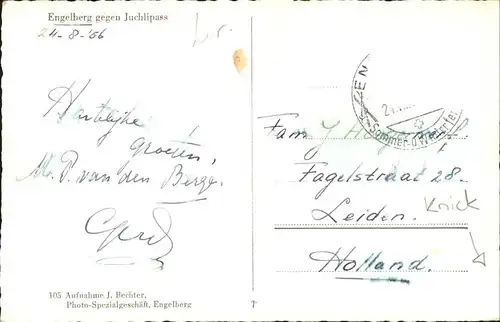 Engelberg gegen Juchlipass
24-8-'56
Hartelijke
groeten,
M. P. van den Berge.
Fam J
Fagelstraat 28-
Leiden.
Holland.
Knick
Sommer- u.
105 Aufnahme J. Bechter,
Photo-Spezialgeschäft, Engelberg